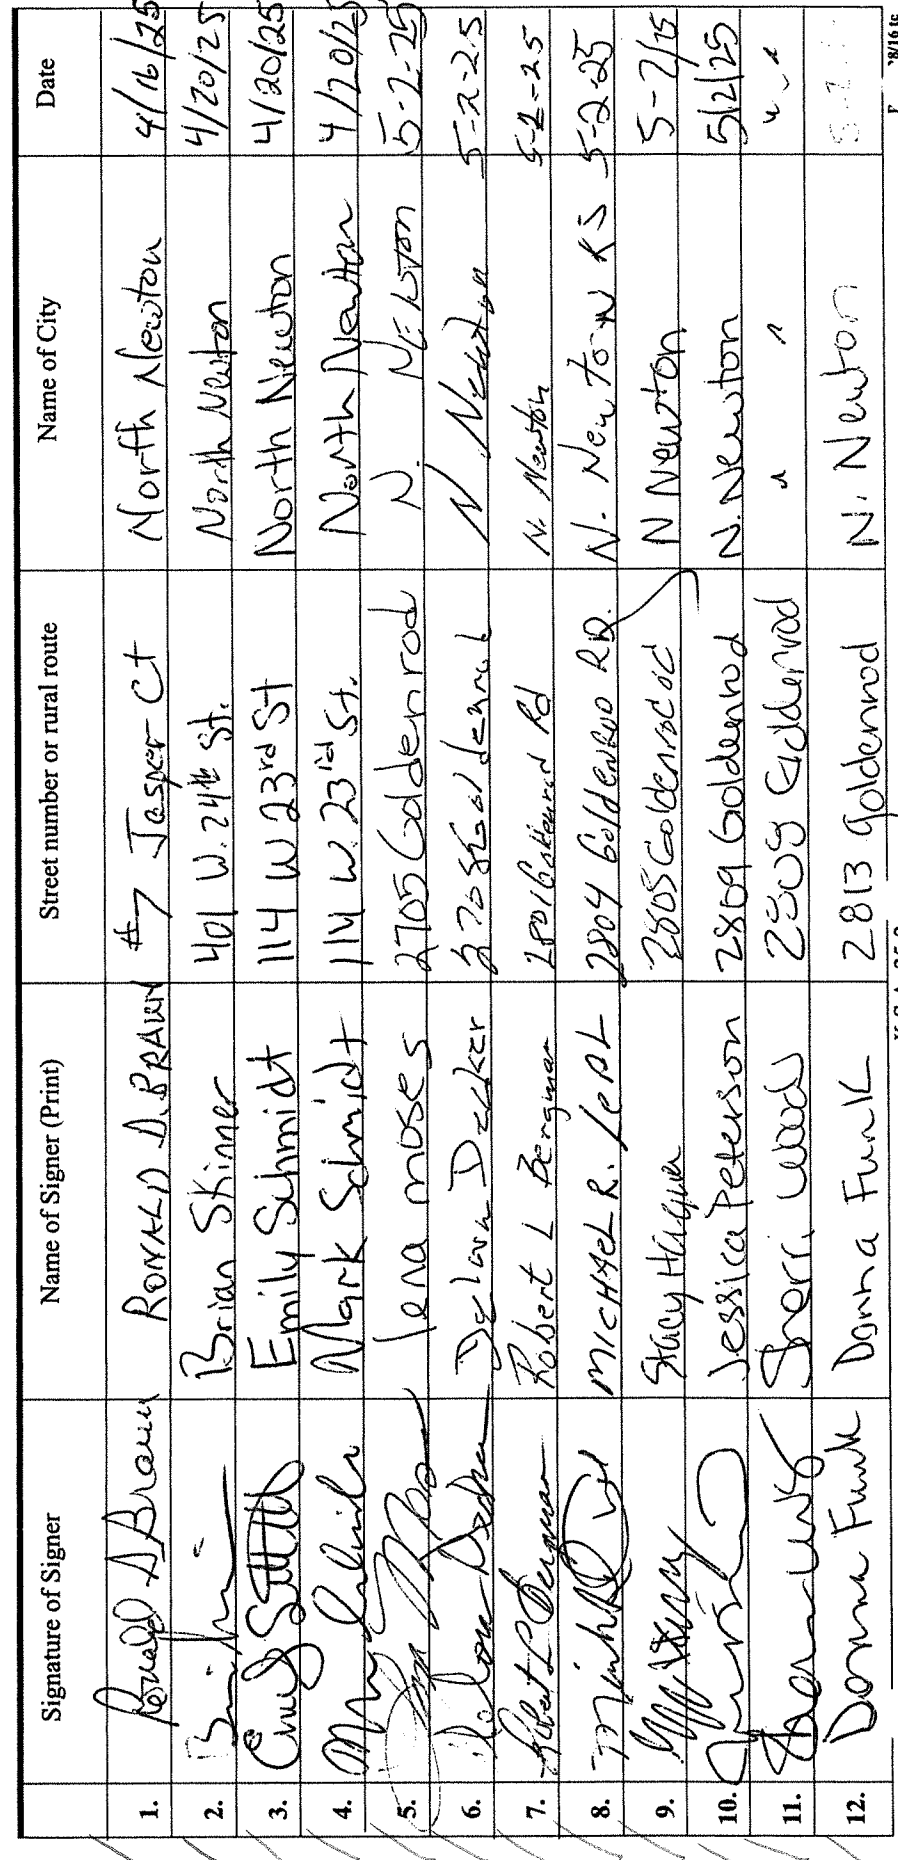 Signature of Signer Name of Signer (Print) Street number or rural route Name of City Date
1. Ronald D Braun RONALD D. BRAUN #7 Jasper Ct North Newton 4/16/25
2. Brian Skinner 401 W. 24th St. North Newton 4/20/25
3. Emily Schmidt 114 W 23rd St North Newton 4/20/25
4. Mark Schmidt 114 W. 23rd St. North Newton 4/20/25
5. lena moses 2705 Goldenrod N. Newton 5-2-25
6. Decker 2708 Goldenrod N Newton 5-2-25
7. Robert L Bergman Robert L Bergman 2801 Goldenrod Rd N. Newton 5-2-25
8. MICHAEL R. 2804 GoldenRod RD. N. Newton KS 5-2-25
9. Stacy 2805 Goldenrod N Newton 5-2/25
10. Jessica Peterson 2809 Goldenrod N. Newton 5/2/25
11. Sherri Woods 2809 Goldenrod " " " "
12. Donna Funk Donna Funk 2813 goldenrod N. Newton 5-2
K.S.A. 25-3